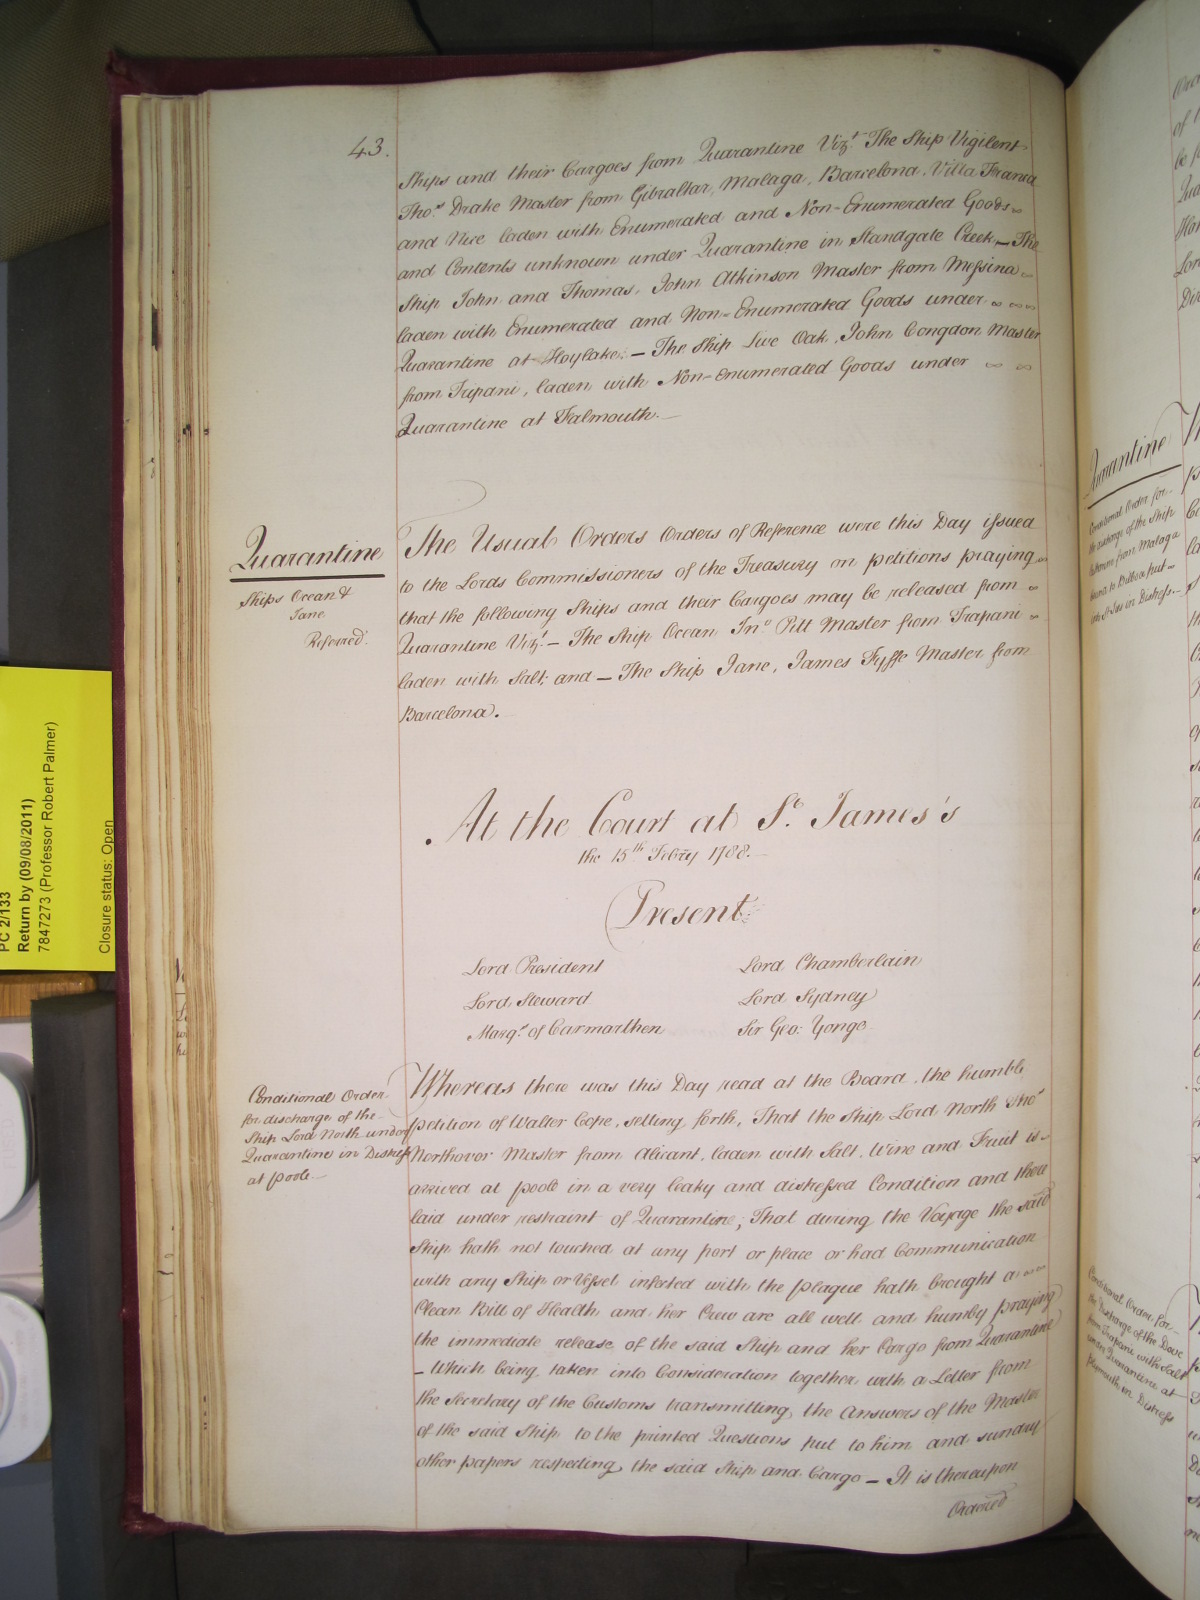 43.
Ships and their Cargoes from Quarantine Vizt. The Ship Vigilent
Thos. Drake Master from Gibraltar, Malaga, Barcelona, Villa Franca
and Nice laden with Enumerated and Non-Enumerated Goods
and Contents unknown under Quarantine in Standgate Creek, — The
Ship John and Thomas, John Atkinson Master from Messina
laden with Enumerated and Non-Enumerated Goods under
Quarantine at Hoylake. — The Ship Live Oak, John Congdon Master
from Trapani, laden with Non-enumerated Goods under
Quarantine at Falmouth. —
Quarantine
Ships Ocean &
Jane
Referred.
The Usual Orders Orders of Reference were this Day issued
to the Lords Commissioners of the Treasury on petitions praying
that the following Ships and their Cargoes may be released from
Quarantine Vizt. — The Ship Ocean Jno. Pitt Master from Trapani
laden with Salt, and — The Ship Jane, James Fyffe Master from
Barcelona.
At the Court at St. James's
the 15th Febry 1788. —
Present
Lord President
Lord Chamberlain
Lord Steward
Lord Sydney
Marqs. of Carmarthen
Sir Geo: Yonge
Conditional Order
for discharge of the
Ship Lord North under
Quarantine in Distress
at poole. —
Whereas there was this Day read at the Board, the humble
petition of Walter Cope, setting forth, That the Ship Lord North Thos
Northover Master from Alicant, laden with Salt, Wine and Fruit is
arrived at poole in a very leaky and distressed Condition and there
laid under restraint of Quarantine; That during the Voyage the said
Ship hath not touched at any port or place or had Communication
with any Ship or Vessel infected with the plague hath brought a
Clean Bill of Health and her Crew are all well and humby praying
the immediate release of the said Ship and her Cargo from Quarantine
— Which being taken into Consideration together with a Letter from
the Secretary of the Customs transmitting the Answers of the Master
of the said Ship to the printed Questions put to him and sundry
other papers respecting the said Ship and Cargo — It is thereupon
Ordered
PC 2/133
Return by (09/08/2011)
7847273 (Professor Robert Palmer)
Closure status: Open
Quarantine
Conditional Order for
the discharge of the Ship
from Malaga
bound to Bilboa put
into St. Ives in Distress. —
Conditional Order for
the Discharge of the Dove
from Trapani with Salt
under Quarantine at
plymouth in Distress